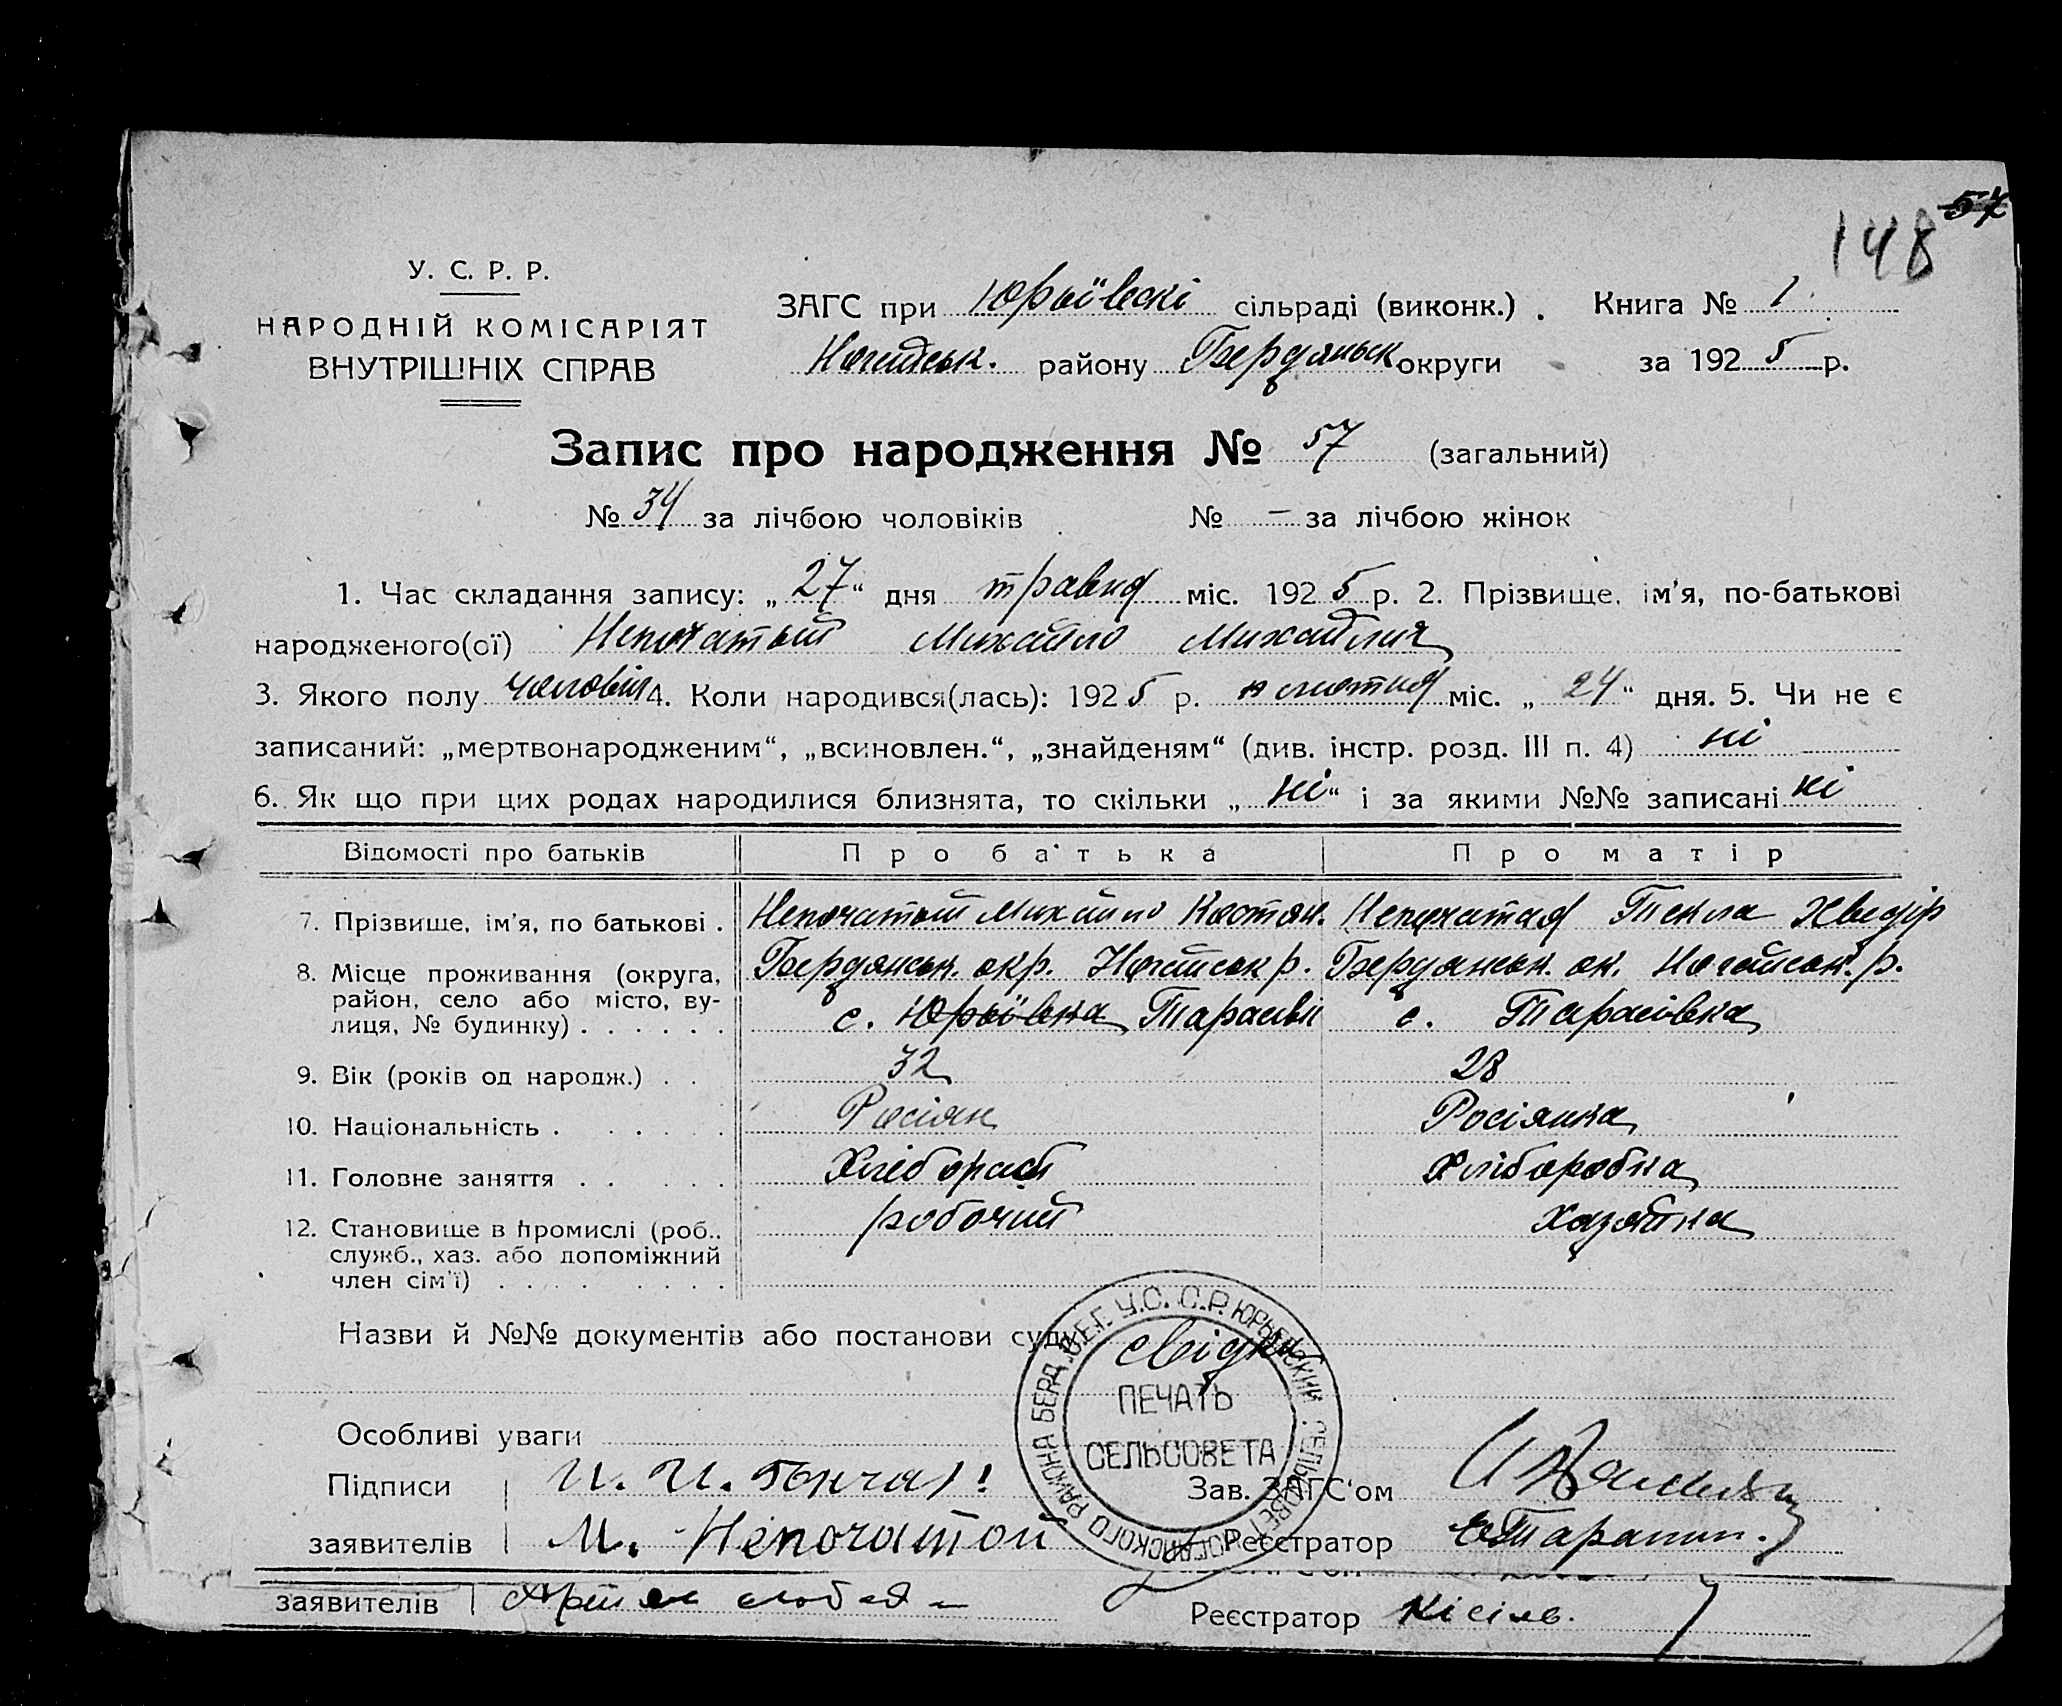 57
148
У. С. Р. Р.
НАРОДНІЙ КОМІСАРІЯТ
ВНУТРІШНІХ СПРАВ
ЗАГС при Юрьївскі сільраді (виконк.). Книга № 1.
Ногайськ. району Бердянськ округи за 1925 р.
Запис про народження № 57 (загальний)
№ 34 за лічбою чоловіків № – за лічбою жінок
1. Час складання запису: „27“ дня травня міс. 1925 р. 2. Прізвище, ім'я, по-батькові
народженого(ої) Непочатый Михайло Михайлич
3. Якого полу чоловіч 4. Коли народився(лась): 1925 р. лютня міс. „24“ дня. 5. Чи не є
записаний: „мертвонародженим“, „всиновлен.“, „знайденям“ (див. інстр. розд. III п. 4) ні
6. Як що при цих родах народилися близнята, то скільки „ні“ і за якими №№ записані ні
Відомості про батьків Про батька Про матір
7. Прізвище, ім'я, по батькові . Непочатый Михайло Костян. Непочатая Текла Хведір
8. Місце проживання (округа, Бердянськ. окр. Ногайськ р. Бердянськ. ок. Ногайськ. р.
район, село або місто, ву-
лиця, № будинку) . . . . . . с. Юрьївка Тарасівк с. Тарасівка
9. Вік (років од народж.) . . 32 28
10. Національність . . . . . . Росіян Росіянка
11. Головне заняття . . . . . Хлібораб Хліборобка
12. Становище в промислі (роб., робочий Хазяйка
служб., хаз. або допоміжний
член сім'ї) . . . . . . . .
Назви й №№ документів або постанови суду свідки
ПЕЧАТЬ
СЕЛЬСОВЕТА
У.С.С.Р. ЮРЬЕВСКИЙ СЕЛЬСОВЕТ НОГАЙСКОГО РАЙОНА БЕРД.
Особливі уваги
Підписи И. И. Зав. ЗАГС'ом
заявителів М. Непочатой Реєстратор
заявителів Реєстратор Кісілв.